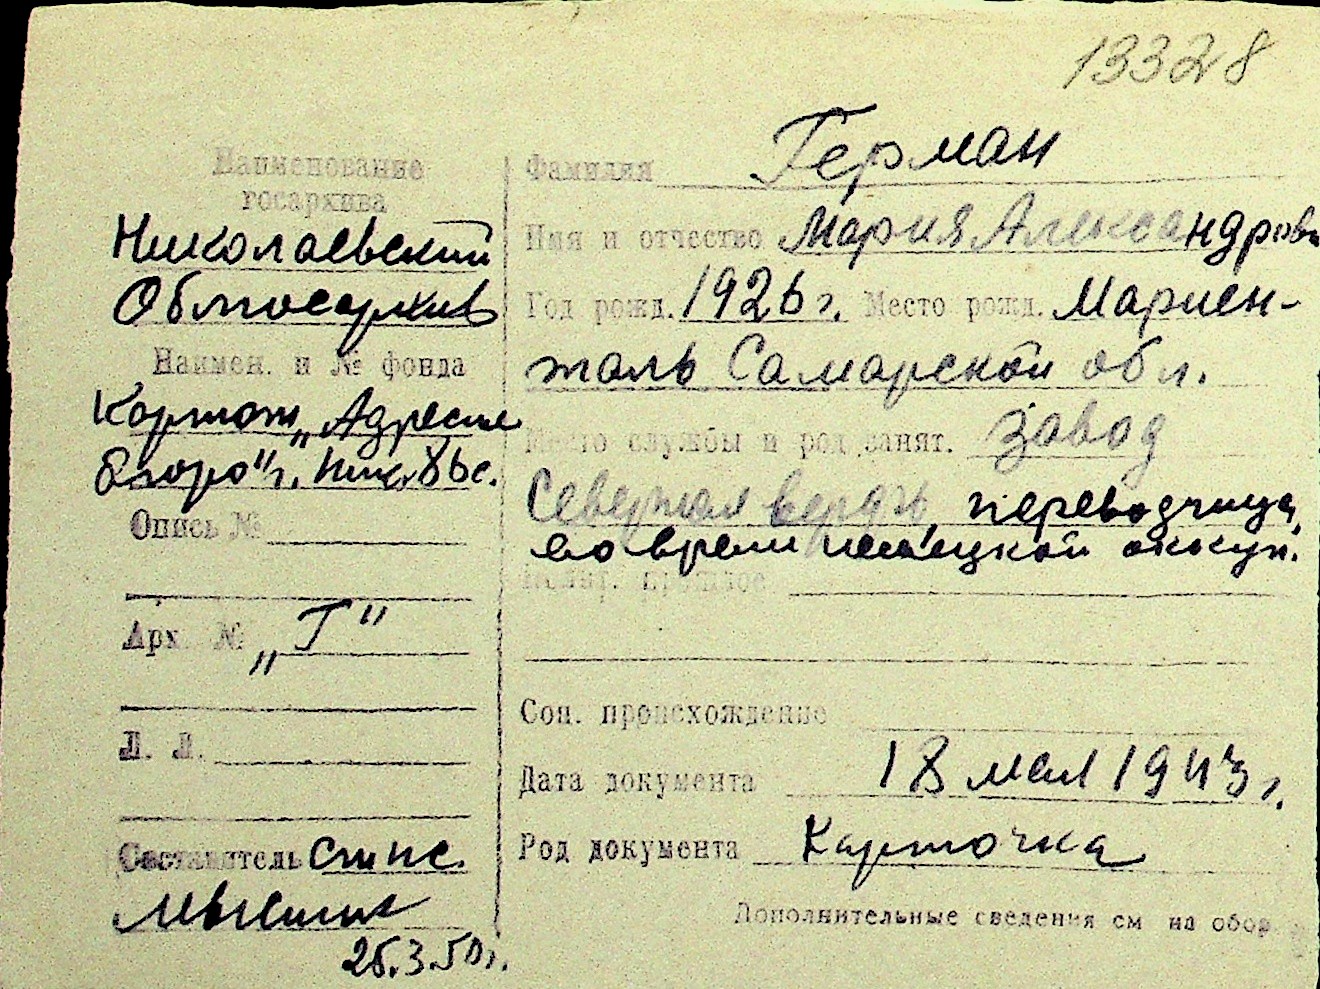 13328
Наименование
госархива
Николаевский
Облгосархив
Наимен. и № фонда
Картот. „Адресное
бюро" г. Ник.
Опись №
Арх. № „Г"
Л. Л.
Составитель
25.3.50 г.
Фамилия Герман
Имя и отчество Мария Александровн
Год рожд. 1926 г. Место рожд. Мариен-
таль Самарской обл.
Место службы и род занят. завод
Северная верфь, переводчица,
во время немецкой оккуп.
Соц. происхождение
Дата документа 18 мая 1943 г.
Род документа Карточка
Дополнительные сведения см на обор.